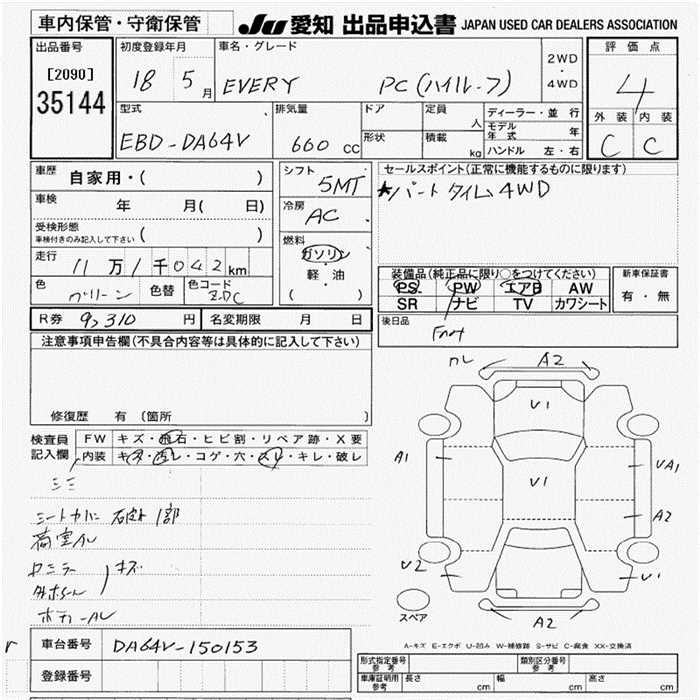 車内保管・守衛保管
JU 愛知 出品申込書 JAPAN USED CAR DEALERS ASSOCIATION
出品番号
[2090]
35144
初度登録年月
18 5 月
車名・グレード
EVERY PC (ハイルーフ)
2WD
・
4WD
評価点
4
外装 内装
C C
型式
EBD-DA64V
排気量
660 cc
ドア
形状
定員
人
積載
kg
ディーラー・並行
モデル年式 年
ハンドル 左・右
車歴
自家用・( )
車検
年 月( 日)
受検形態
車検付きのみ記入して下さい ( )
走行
11万1千042km
色
グリーン
色替
色コード
ZDC
シフト
5MT
冷房
AC
燃料
ガソリン
・
軽・油
( )
セールスポイント(正常に機能するものに限ります)
★パートタイム4WD
装備品(純正品に限り○をつけてください)
PS PW エアB AW
SR ナビ TV カワシート
新車保証書
有・無
R券 9,310 円
名変期限 月 日
後日品
注意事項申告欄(不具合内容等は具体的に記入して下さい)
修復歴 有(箇所 )
検査員
記入欄
FW キズ・飛石・ヒビ割・リペア跡・X要
内装 キズ・汚レ・コゲ・穴・スレ・キレ・破レ
A2
V1
A1
V1
VA1
A2
V2
V1
A2
スペア
A-キズ E-エクボ U-凹み W-補修跡 S-サビ C-腐食 XX-交換済
車台番号 DA64V-150153
登録番号
型式指定番号
参考
類別区分番号
参考
車庫証明用
参考
長さ cm 幅 cm 高さ cm